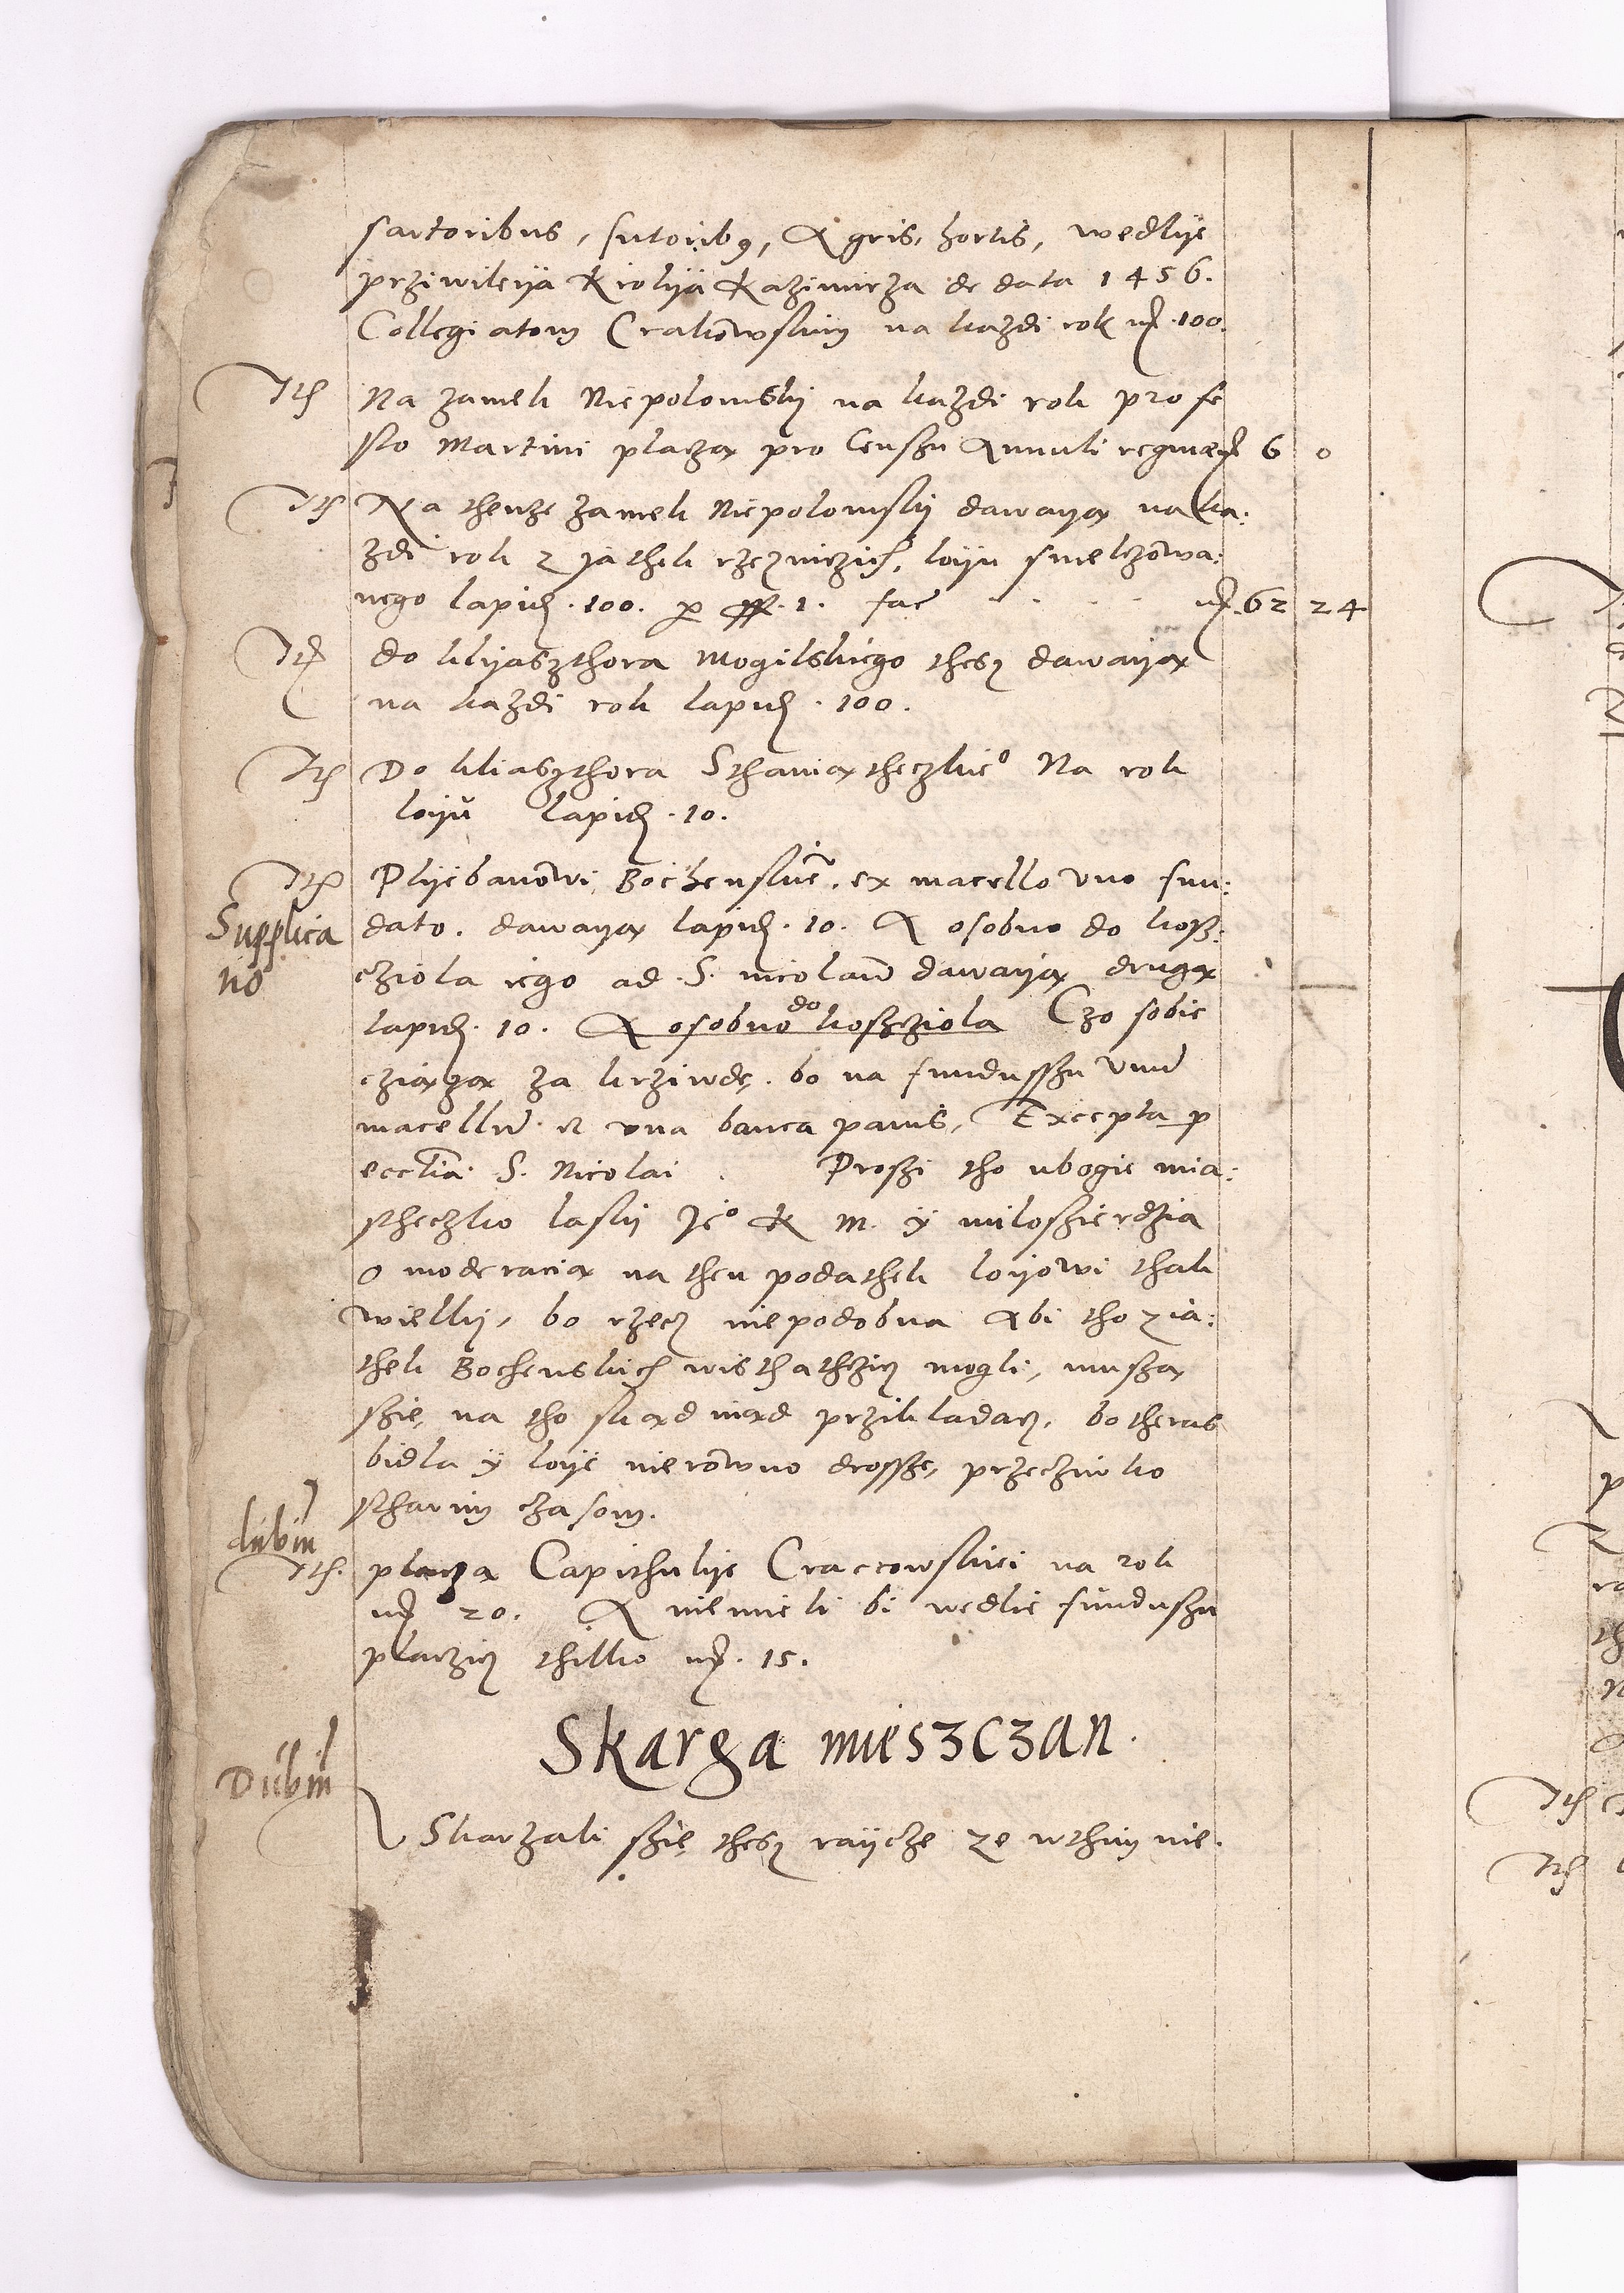 sartoribus, sutorib9, Agris, hortis, wedlije
prziwileija Krolija Kazimirza de data 1456.
Collegiatom Crakowskim na kazdi rok mr. 100.
Itm Na zamek Niepolomskij na kazdi rok pro fe
sto Martini placza pro Censzu Annuli mr 6 0
Itm Na thenze zamek Niepolomskij dawaya na ka:
zdi rok z jathek rzezniczich, loiju smelczowa:
nego lapid. 100. per gr. 1. fac mr. 62 24
Itm do klijaszthora Mogilskiego thesz dawaija
na kazdi rok lapid. 100.
Itm Do kliaszthora Sthaniatheczkieo Na rok
loiju lapid. 10.
Itm Plijebanowi Bochenskie. ex macello vno fun:
Supplica
no
dato. dawaya lapid. 10. A osobno do kosz:
cziola iego ad S. nicolau dawaija druga
lapid. 10. A osobno do koszcziola Czo sobie
cziaza za krziwde. bo na fundusshu vnu
macellu et vna banca panis, Excepta p
ecclia S. Nicolai. Proszi tho ubogie mia:
stheczko laskij Jeo K M. ÿ miloszierdzia
o moderacia na then podathek loyowi thak
wielkij, bo rzecz niepodobna Abi tho z ia:
thek Bochenskich wisthathczicz mogli, musza
szie, na tho skad inad przikladacz, bo theras
bidla ÿ loije nierowno drossze, przecziwko
stharim czasom.
dubiu
Itm. placza Capithulije Craccowskiei na rok
mr 20. A nie mieli bi wedlie funduszu
placzicz thilko mr. 15.
Skarga mieszczan.
Dubiu
Skarzali szie thesz raijcze ze wthim nie.